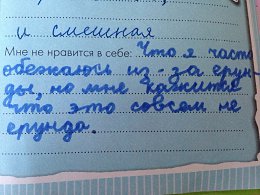 и смешная
Мне не нравится в себе: Что я часто
обежаюсь из-за ерун-
ды, но мне кажится
что это совсем не
ерунда.